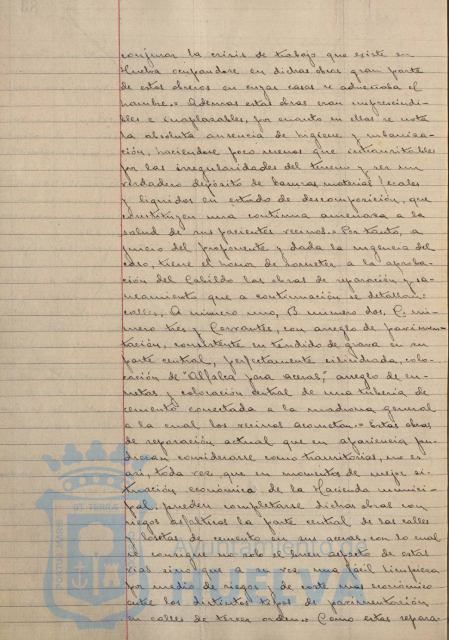 conjurar la crisis de trabajo que existe en
Huelva ocupandose en dichas obras gran parte
de estos obreros en cuyas casas se adueñaba el
hambre.= Ademas estas obras eran imprescindi-
bles e inaplazables, por cuanto en ellas se nota
la absoluta ausencia de higiene y urbaniza-
ción, haciendose poco menos que intransitables
por las irregularidades del terreno y ser un
verdadero depósito de basuras, materias fecales
y liquidos en estado de descomposición, que
constituyen una continua amenaza a la
salud de sus pacientes vecinos.= Por tanto, a
juicio del proponente y dada la urgencia del
caso, tiene el honor de someter a la aproba-
ción del Cabildo las obras de reparación y sa-
neamiento que a continuación se detallan:
calles, A número uno, B número dos, C, nú-
mero tres y Cervantes, con arreglo de pavimen-
tación, consistente en tendido de grava en su
parte central, perfectamente cilindrada, colo-
cación de "Alfalca para aceras", arreglo de cu-
netas y colocación central de una tuberia de
cemento conectada a la madrona general
a la cual los vecinos acometan.= Estas obras
de reparación actual que en apariencia pu-
dieran considerarse como transitorias, no es
asi, toda vez que en momentos de mejor si-
tuación económica de la Hacienda munici-
pal pueden completarse dichas obras con
riegos asfalticos la parte central de las calles
y losetas de cemento en sus aceras, con lo cual
se consigue no solo el buen aspecto de estas
vias sino que a su vez una fácil limpieza
por medio de riegos de coste mas económico
entre los distintos tipos de pavimentación
en calles de tercer orden.= Como estas repara-
Ayuntamiento de
HUELVA